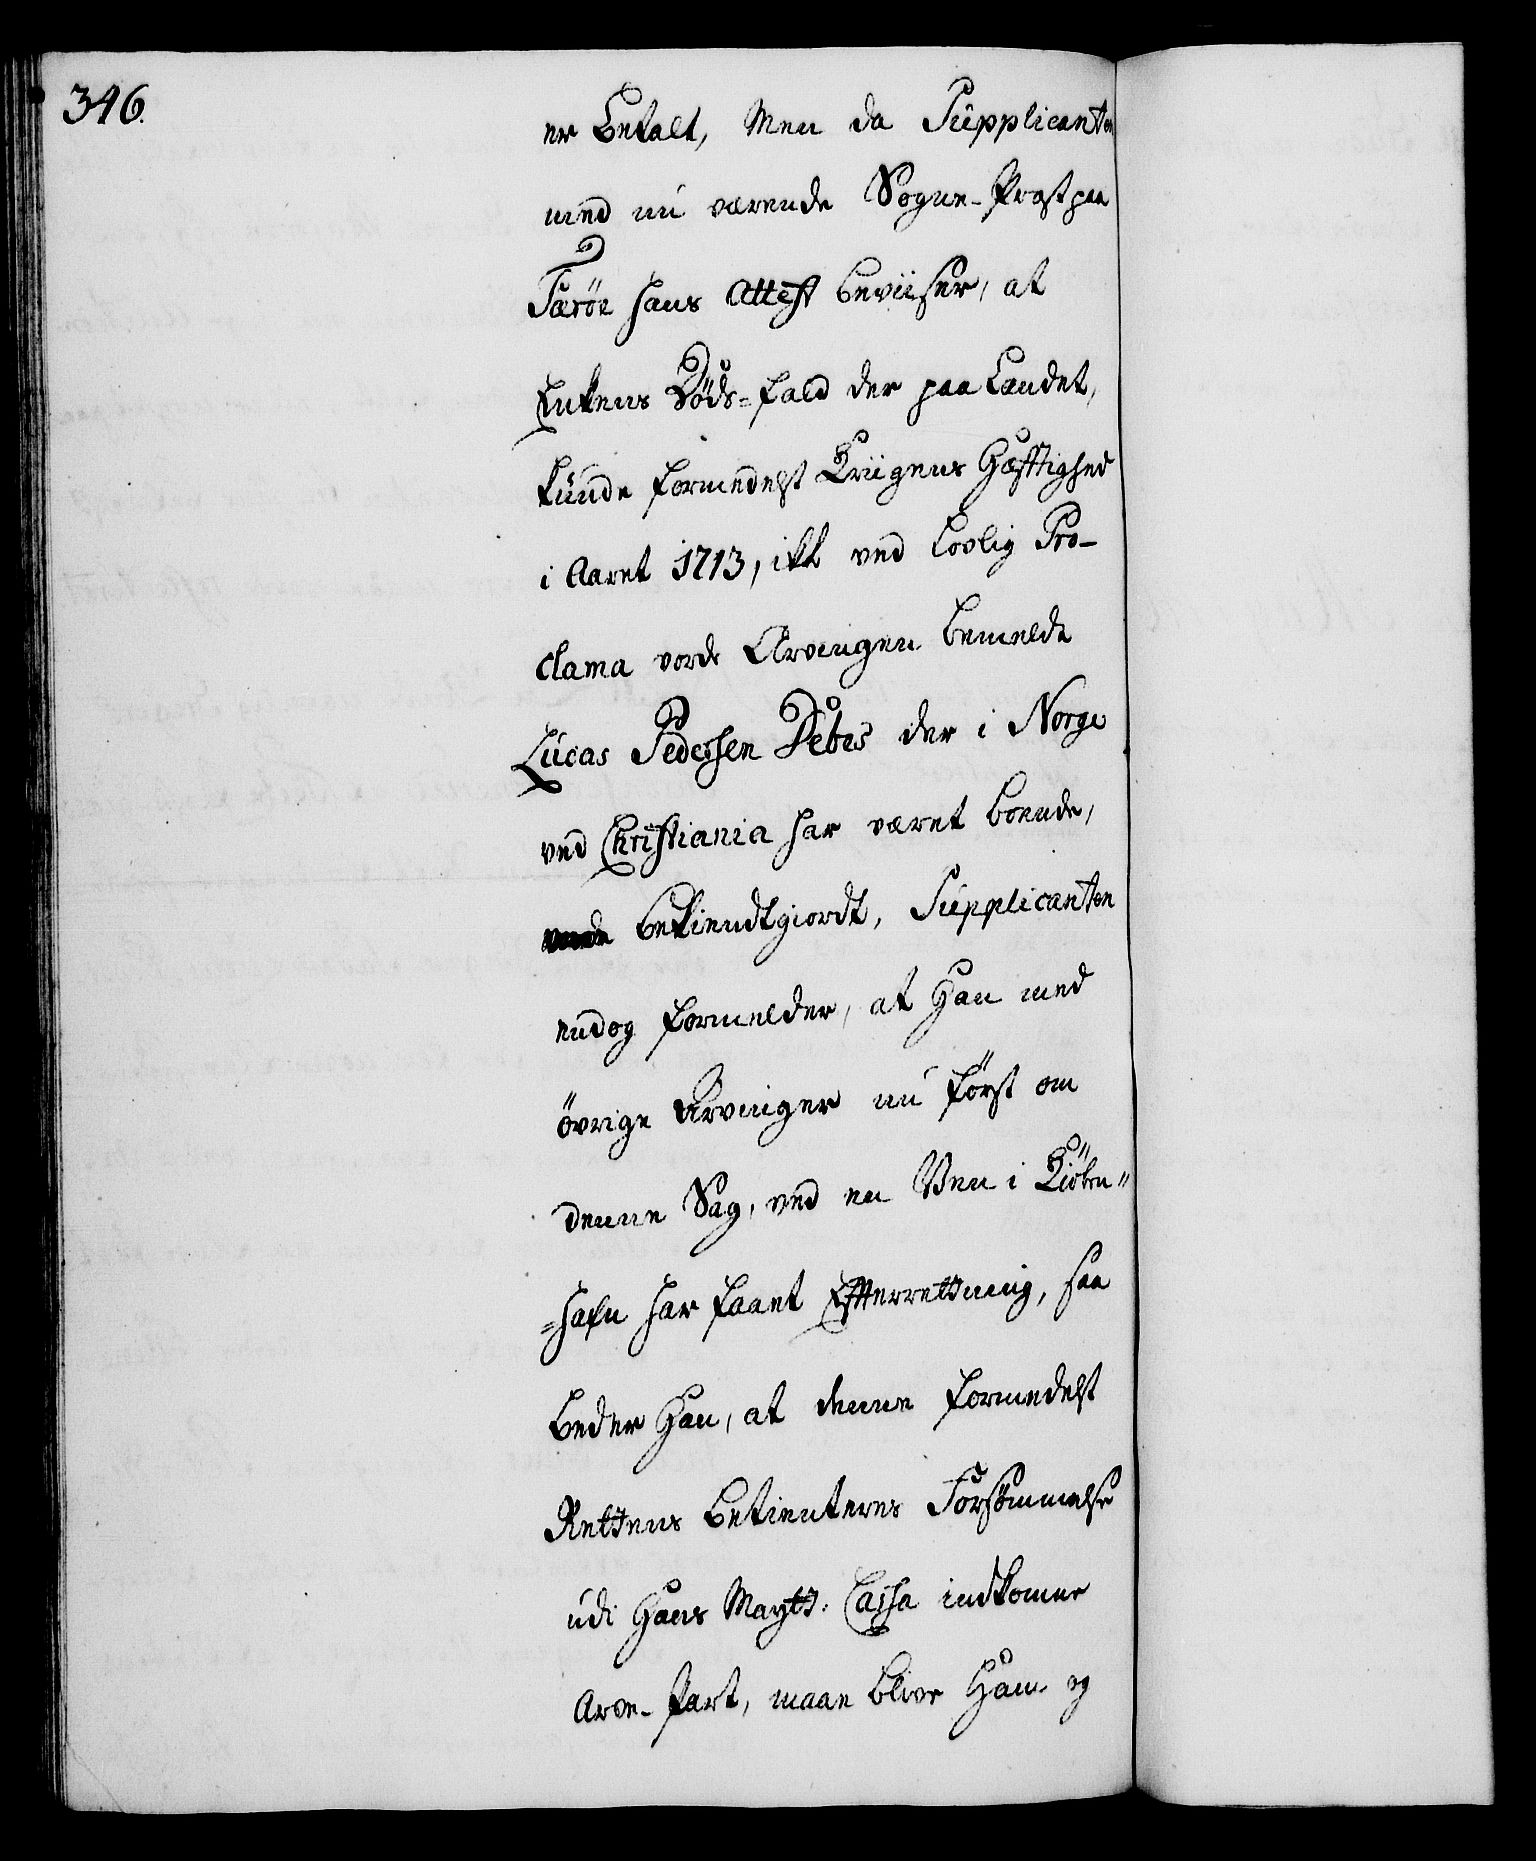 346.
er betalt, Men da Supplicanten
med nu værende Sogne-Prost paa
Færöe hans Attest beviiser, at
Enkens Döds-fald der paa Landet,
kunde formedelst Kriigens Hæfftighed
i Aaret 1713, ikke ved lovlig Pro-
clama vorde Arvingen bemeldte
Lucas Pedersen Debes der i Norge
ved Christiania har været boende,
bekiendtgiordt, Supplicanten
endog formelder, at Han med
övrige Arvinger nu först om
denne Sag, ved en Ven i Kiöben"
=hafn har faaet Effterretning, saa
beder Han, at denne formedelst
Rettens betienteres Forsömmelse
udi Hans Maytt: Cassa indkomne
Arve-Part, maae blive Ham og